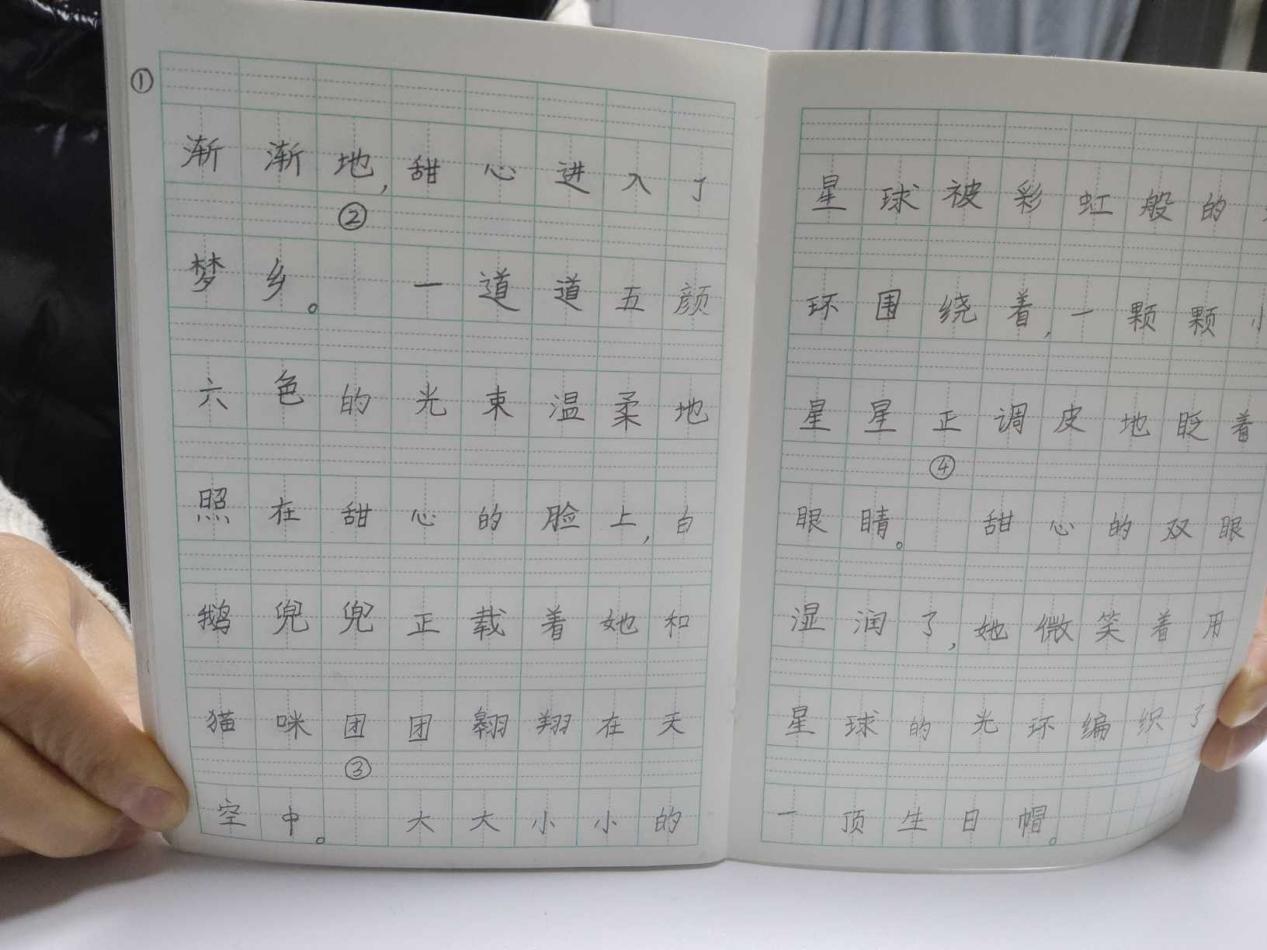 ①
渐渐地，甜心进入了
②
梦乡。 一道道五颜
六色的光束温柔地
照在甜心的脸上，白
鹅兜兜正载着她和
猫咪团团翱翔在天
③
空中。 大大小小的
星球被彩虹般的
环围绕着，一颗颗小
星星正调皮地眨着
④
眼睛。 甜心的双眼
湿润了，她微笑着用
星球的光环编织了
一顶生日帽。